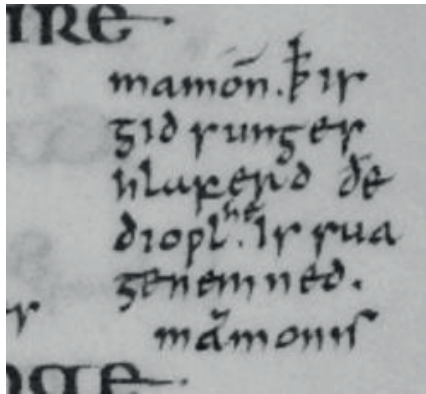 ire·
mamón. ꝥ is
gidsunges
hlaferd ðe
dioƿl. he Is sua
genemned.
mamonis